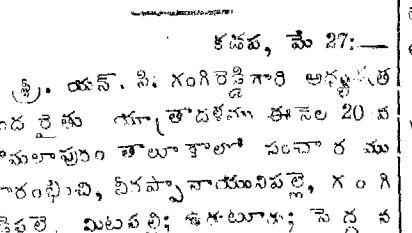 కడప, మే 27:—
శ్రీ. యన్. సి. గంగిరెడ్డిగారి అధ్యక్షత
రైతు యాత్రాదళము ఈనెల 20 వ
తాలూకాలో సంచారము
వీరప్పానాయునిపల్లె, గంగి
మిటపల్లి; ఉరుటూరు; పెద్ద